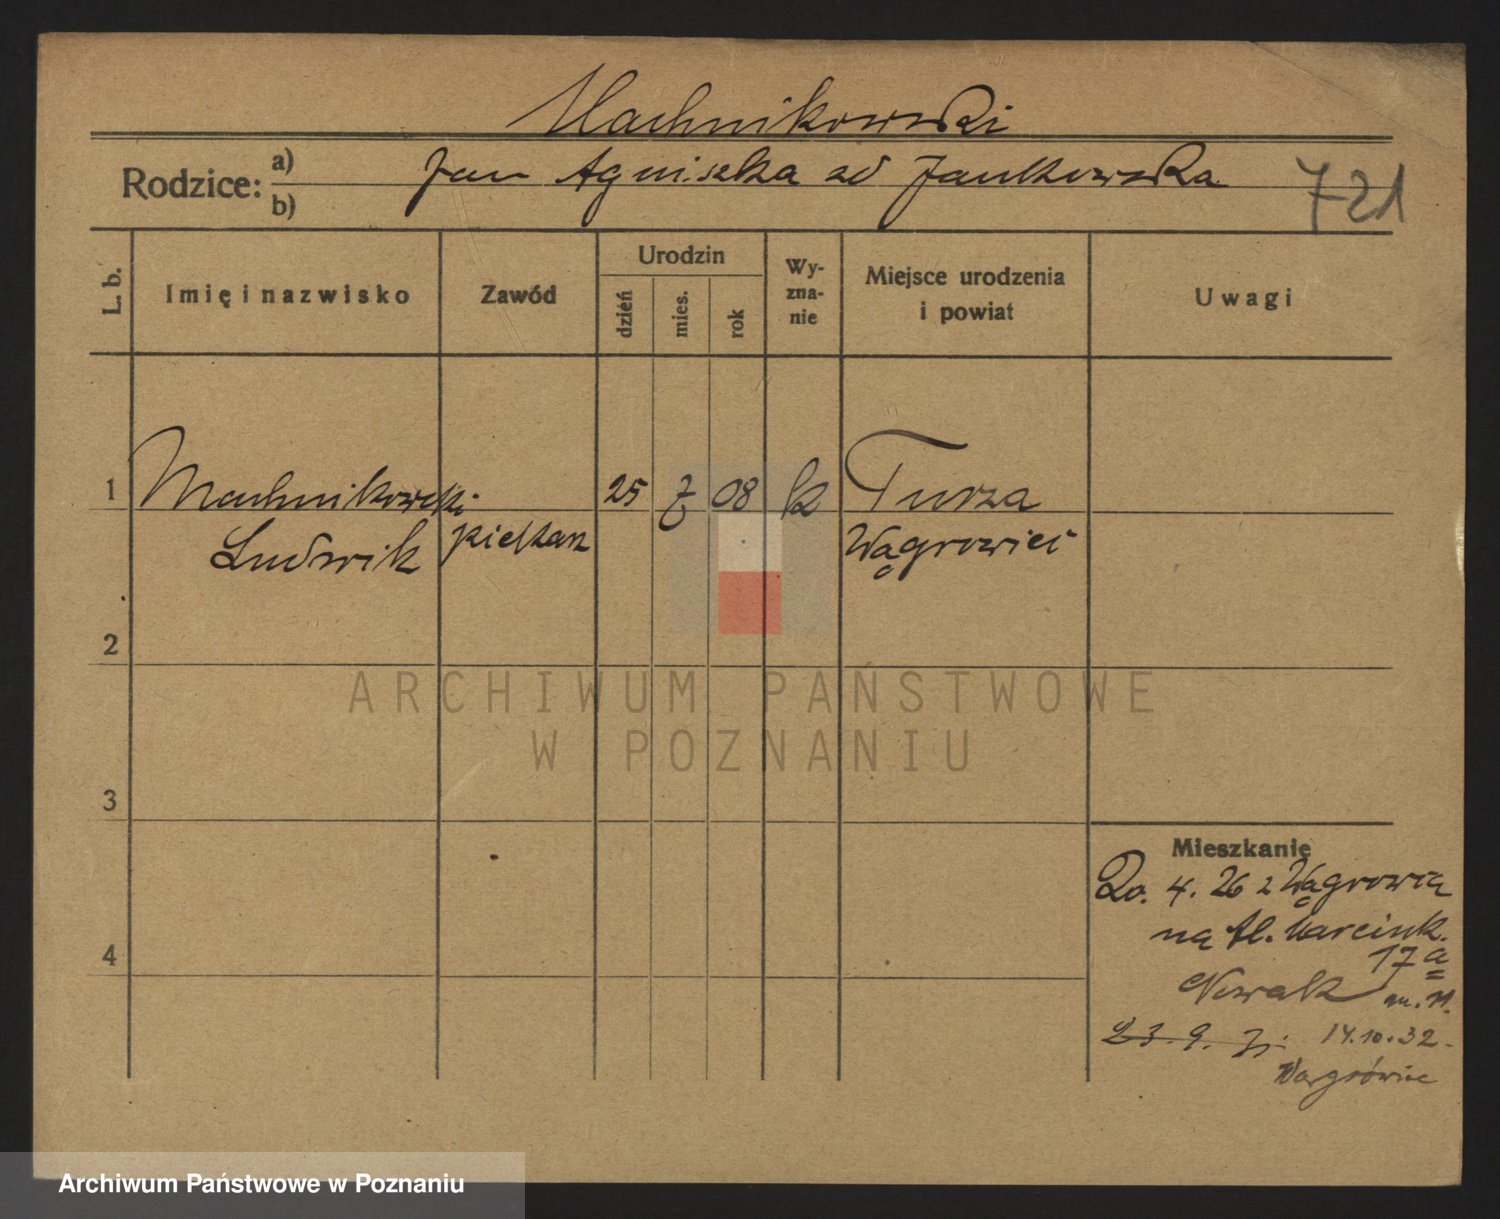 Machnikowski
Rodzice: a) b)
Jan Agniszka zd Jankowska
721
L. b.
Imię i nazwisko
Zawód
Urodzin
dzień
mies.
rok
Wy-
zna-
nie
Miejsce urodzenia
i powiat
Uwagi
1
Machnikowski
Ludwik
piekarz
25 7 08
k
Turza
Wągrowiec
2
3
4
ARCHIWUM PAŃSTWOWE
W POZNANIU
Mieszkanie
20. 4. 26 z Wągrowca
na Al. Marcink.
17a
Nowak
23. 9.
14.10.32.
Wągrówiec
Archiwum Państwowe w Poznaniu